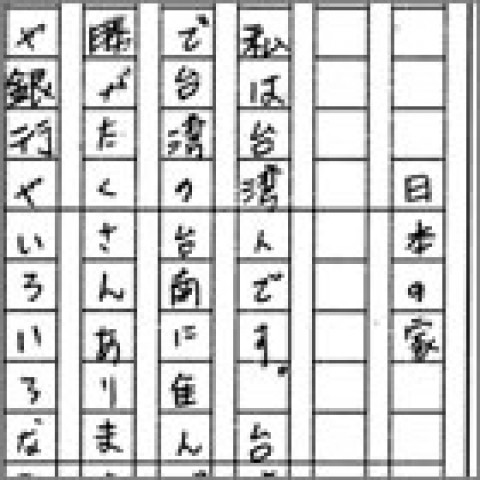 日本の家
私は台湾人です。台
で台湾の台南に住ん
がたくさんありま
や銀行やいろいろな